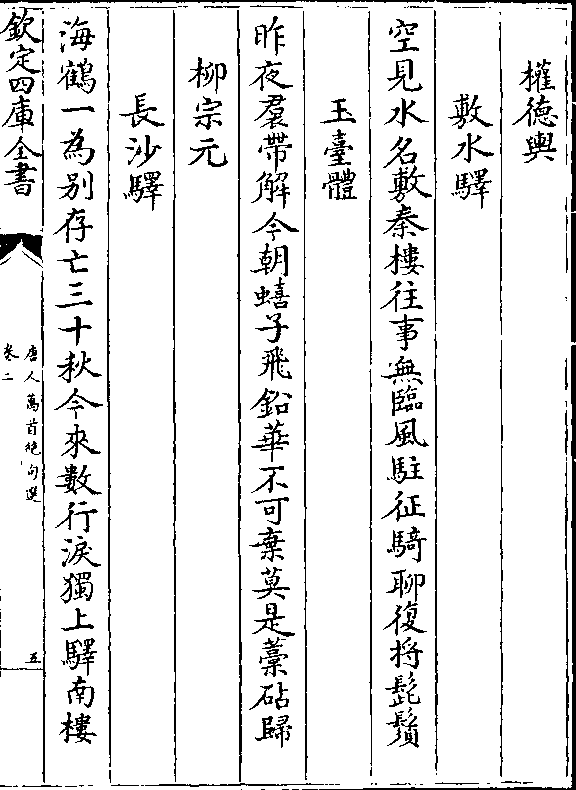 權德輿
敷水驛
空見水名敷秦樓徃事無臨風駐征騎聊復捋髭鬚
玉臺體
昨夜裙帶解今朝蟢子飛鉛華不可棄莫是藁砧歸
柳宗元
長沙驛
海鶴一為别存亡三十秋今來數行淚獨上驛南樓
欽定四庫全書
唐人萬首絶句選
卷二
五